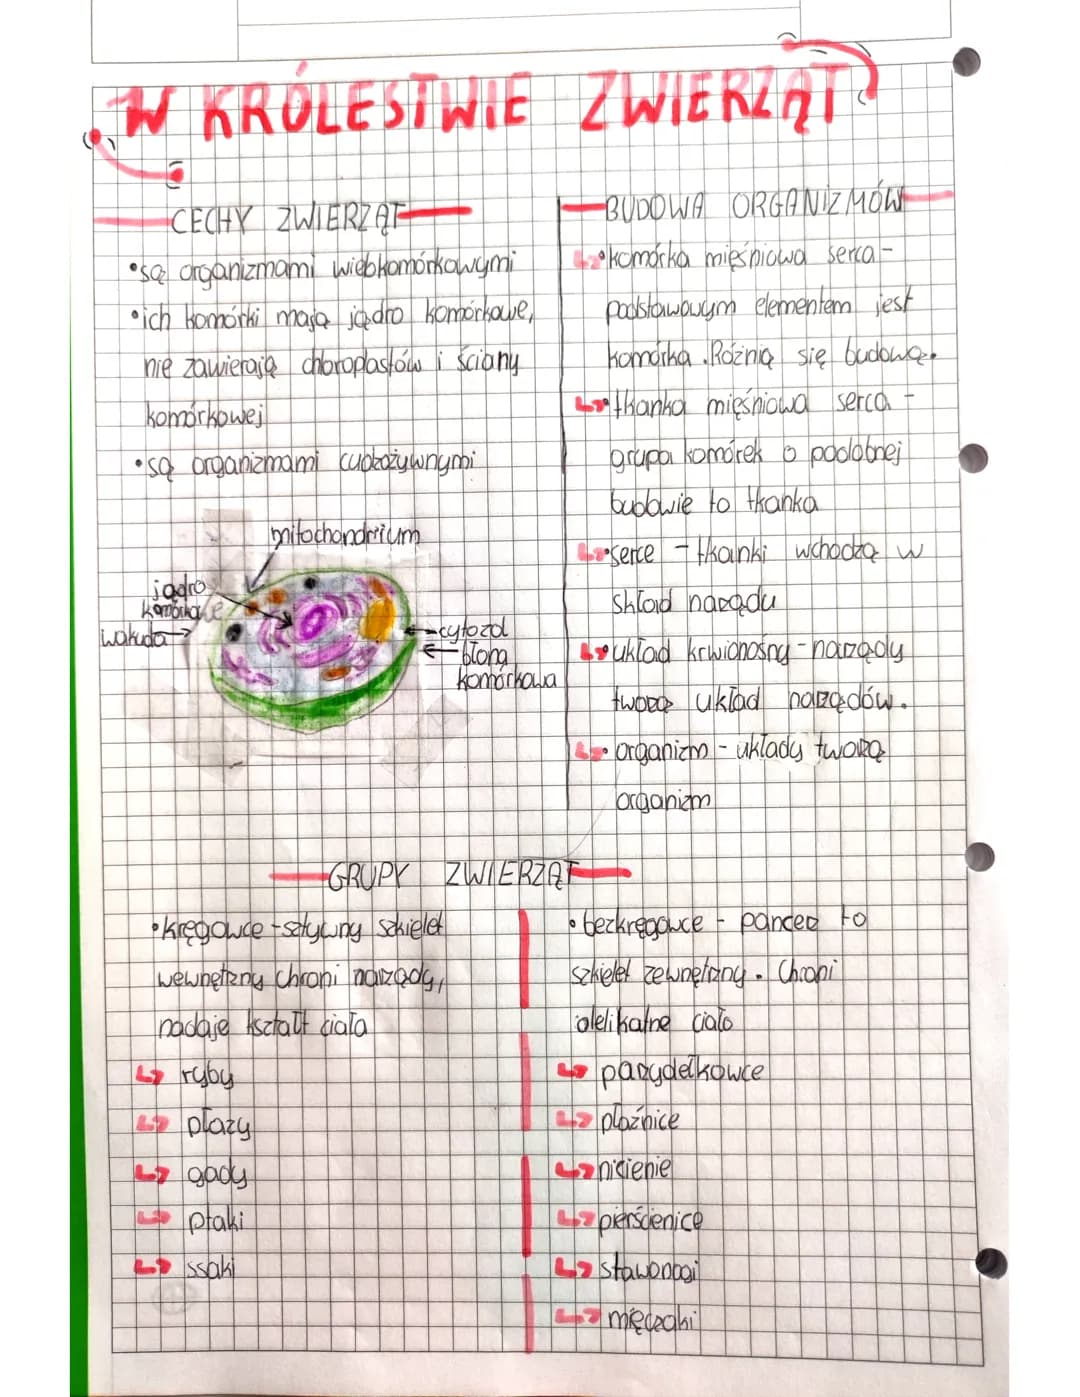 W KRÓLESTWIE ZWIERZĄT
CECHY ZWIERZĄT
•są organizmami wielokomórkowymi
•ich komórki mają jądro komórkowe,
nie zawierają chloroplastów i ściany
komórkowej
•są organizmami cudzożywnymi
mitochondrium
jądro
komórkowe
wakuola
cytozol
błona
komórkowa
BUDOWA ORGANIZMÓW
↳•komórka mięśniowa serca -
podstawowym elementem jest
komórka. Różnią się budową.
↳•tkanka mięśniowa serca -
grupa komórek o podobnej
budowie to tkanka
↳•serce - tkanki wchodzą w
skład narządu
↳•układ krwionośny - narządy
tworzą układ narządów.
↳• organizm - układy tworzą
organizm
GRUPY ZWIERZĄT
•kręgowce - sztywny szkielet
wewnętrzny chroni narządy,
nadaje kształt ciała
↳ ryby
↳ płazy
↳ gady
↳ ptaki
↳ ssaki
• bezkręgowce - pancerz to
szkielet zewnętrzny. Chroni
delikatne ciało
↳ parzydełkowce
↳ płazińce
↳ nicienie
↳ pierścienice
↳ stawonogi
↳ mięczaki